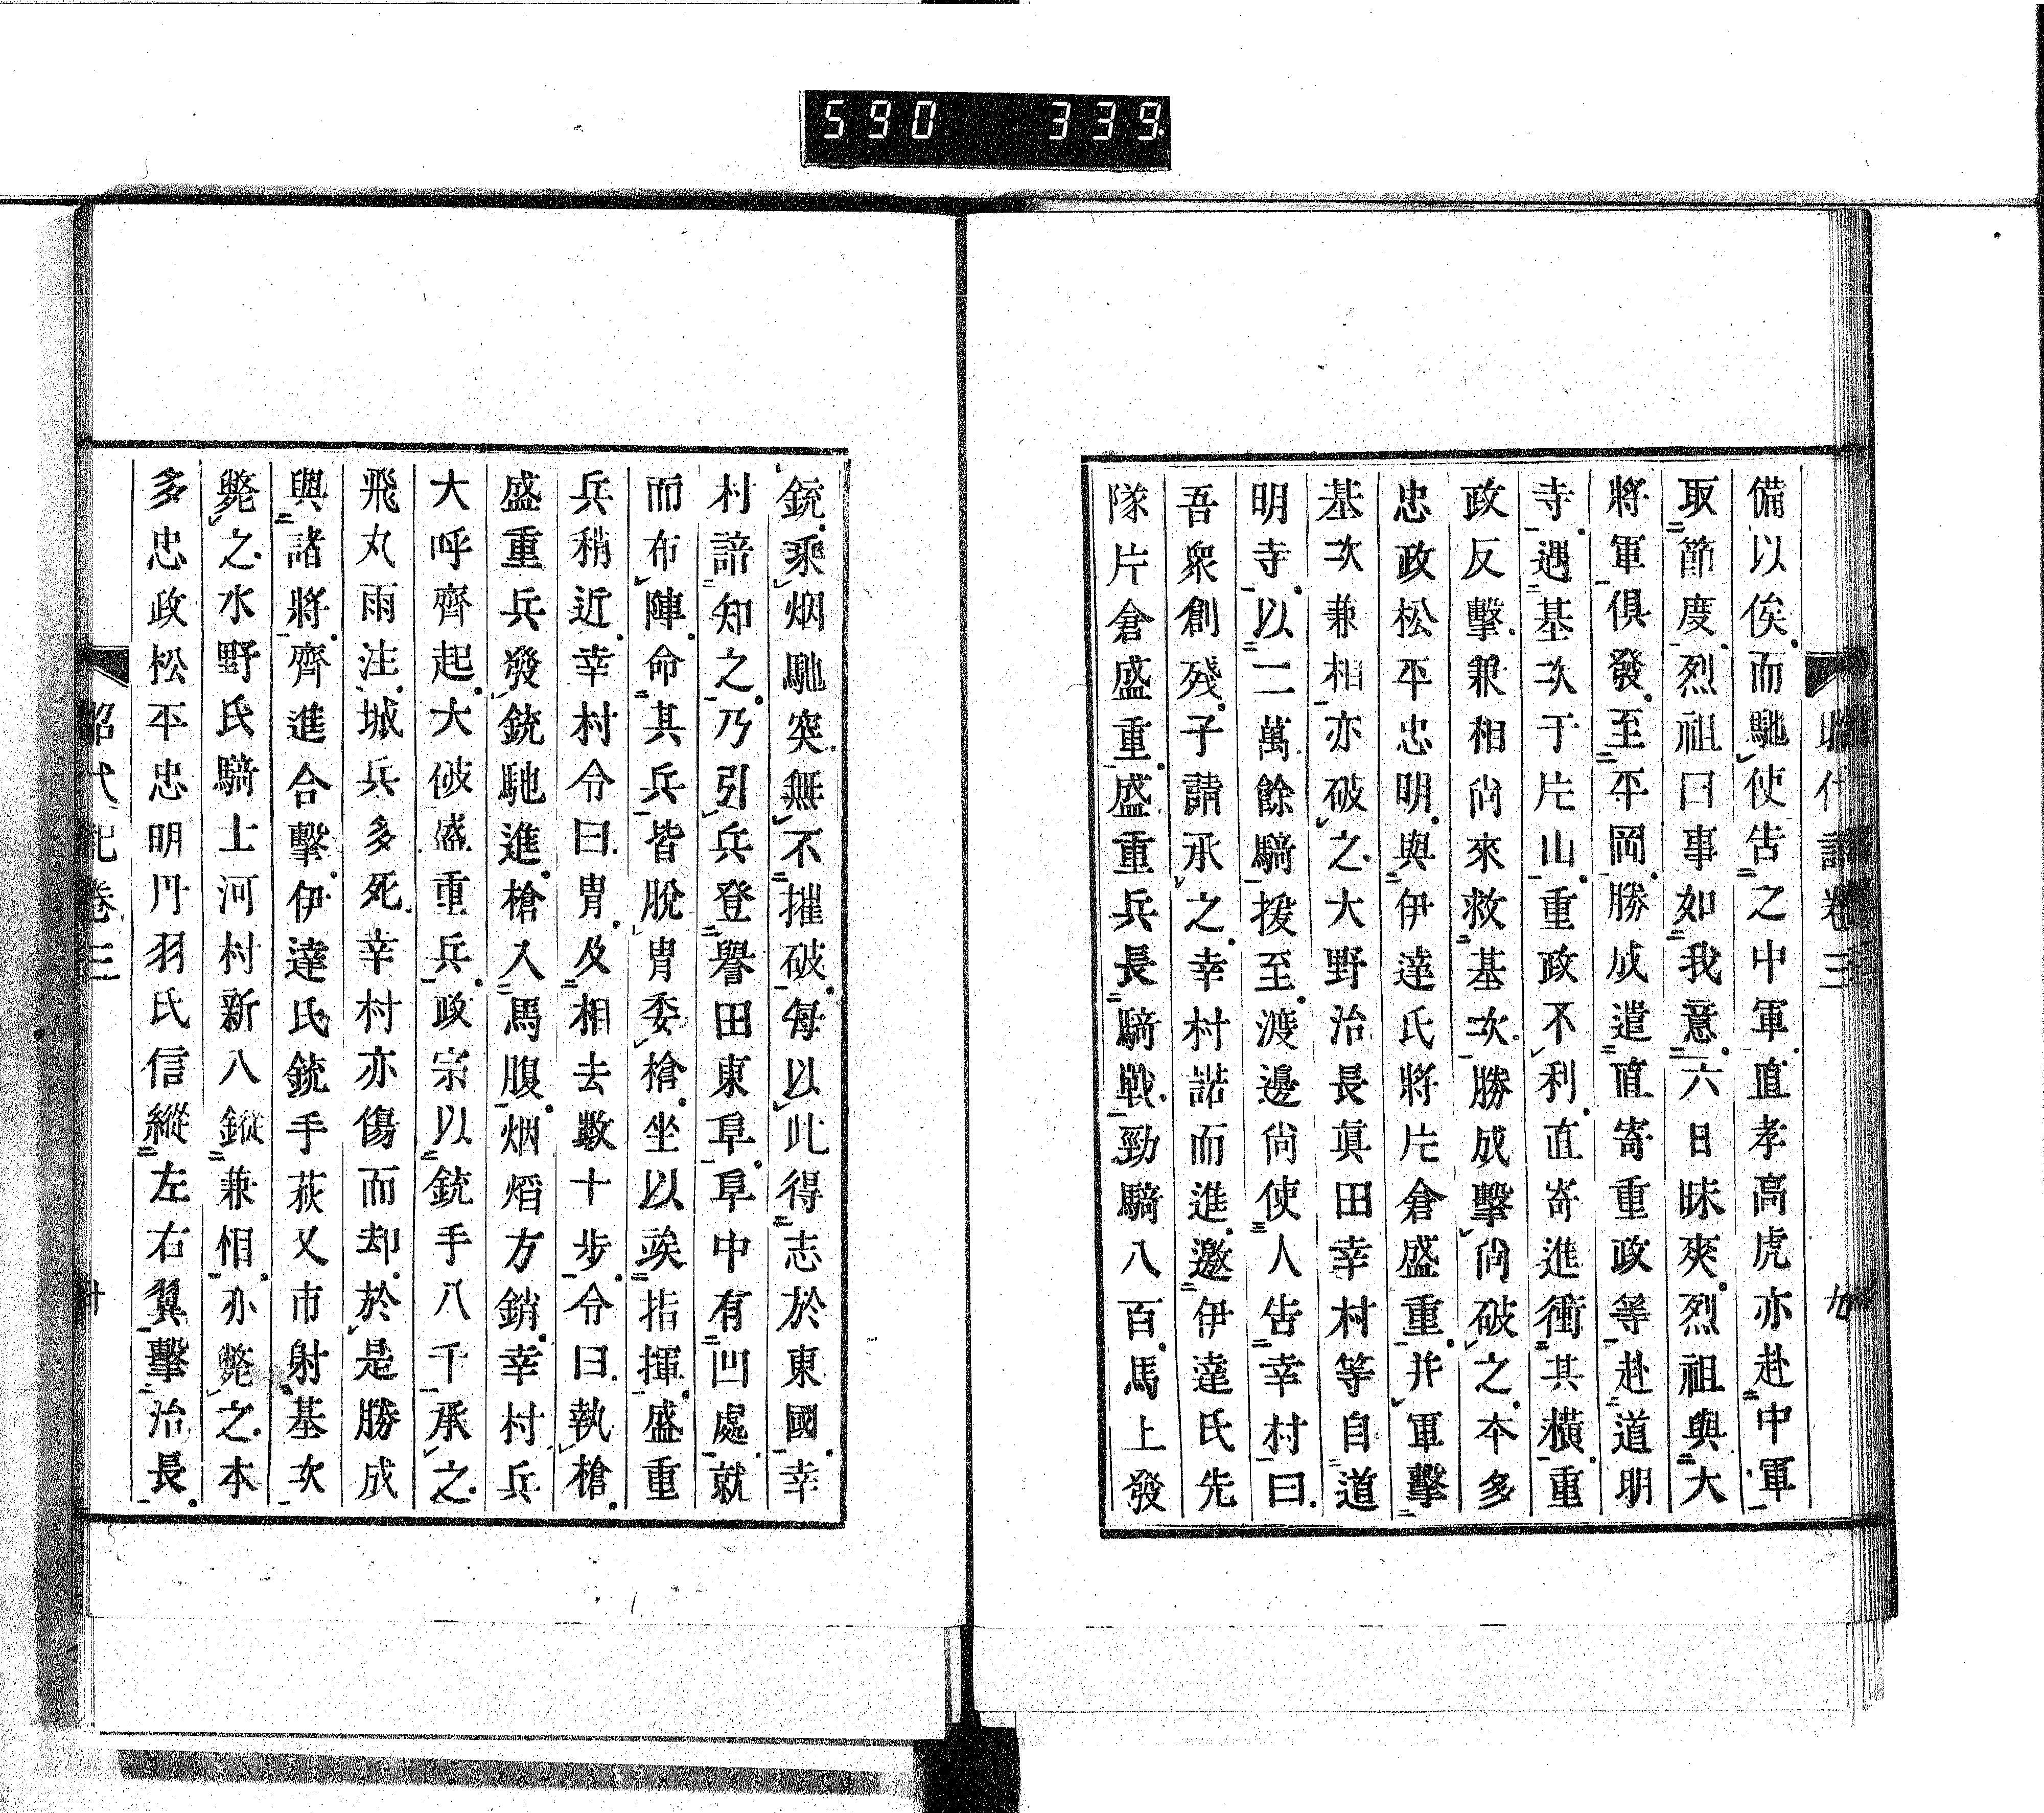 590 339
昭代記卷三 九
備以俟而馳使告之中軍直孝高虎亦赴中軍
取節度烈祖曰事如我意六日昧爽烈祖與大
將軍俱發至平岡勝成遣直寄重政等赴道明
寺遇基次于片山重政不利直寄進衝其橫重
政反擊兼相尙來救基次勝成擊尙破之本多
忠政松平忠明與伊達氏將片倉盛重并軍擊
基次兼相亦破之大野治長眞田幸村等自道
明寺以二萬餘騎援至渡邊尙使人告幸村曰
吾衆創殘子請承之幸村諾而進邀伊達氏先
隊片倉盛重盛重兵長騎戰勁騎八百馬上發
銃乘烟馳突無不摧破每以此得志於東國幸
村諳知之乃引兵登譽田東阜阜中有凹處就
而布陣命其兵皆脫胄委槍坐以竢指揮盛重
兵稍近幸村令曰胄及相去數十步令曰執槍
盛重兵發銃馳進槍入馬腹烟熖方銷幸村兵
大呼齊起大破盛重兵政宗以銃手八千承之
飛丸雨注城兵多死幸村亦傷而却於是勝成
與諸將齊進合擊伊達氏銃手萩又市射基次
斃之水野氏騎士河村新八鏦兼相亦斃之本
多忠政松平忠明丹羽氏信縱左右翼擊治長
昭代記卷三 十